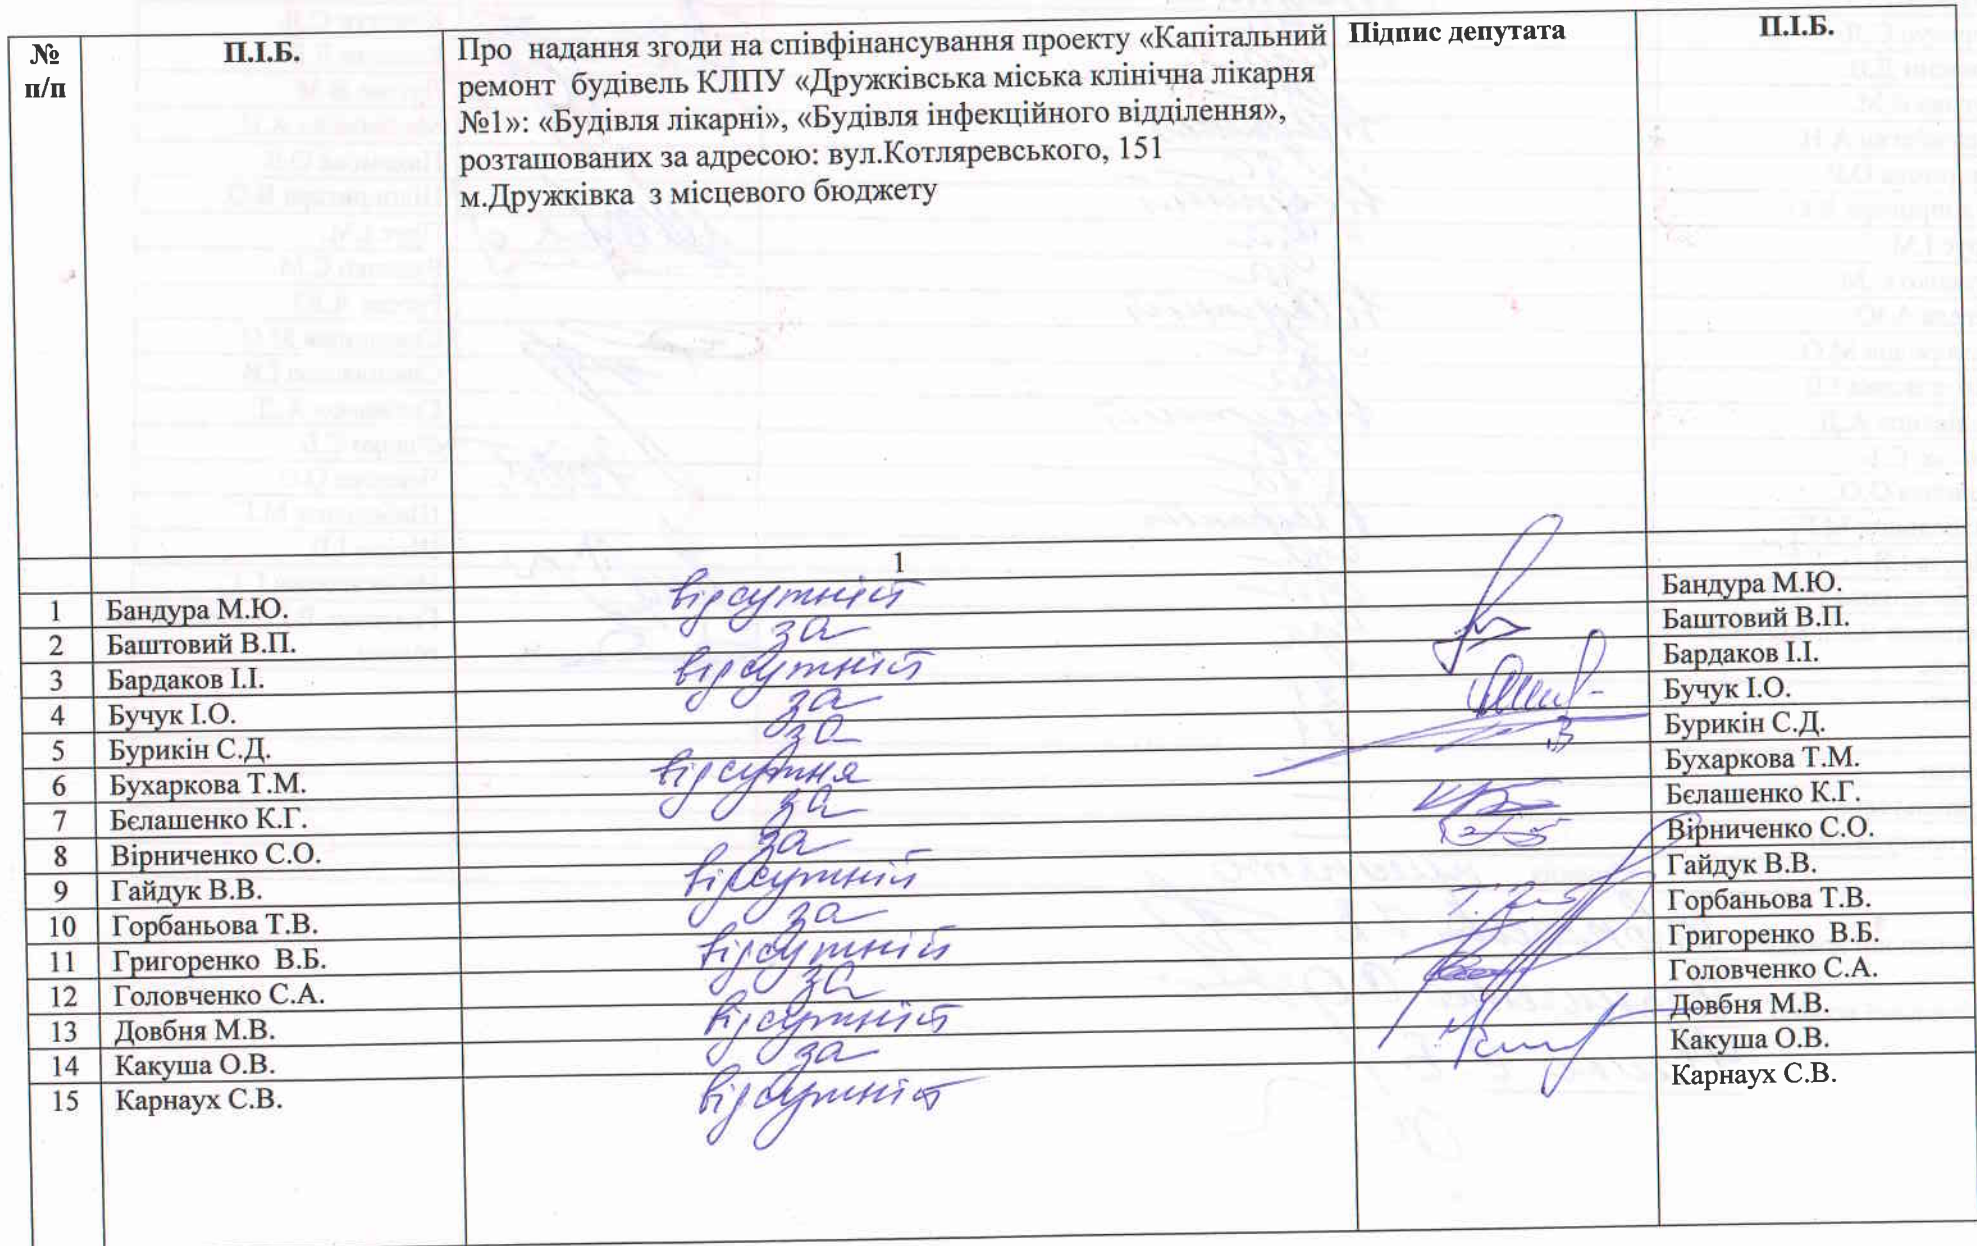 № п/п П.І.Б. Про надання згоди на співфінансування проекту «Капітальний Підпис депутата П.І.Б.
ремонт будівель КЛПУ «Дружківська міська клінічна лікарня
№1»: «Будівля лікарні», «Будівля інфекційного відділення»,
розташованих за адресою: вул.Котляревського, 151
м.Дружківка з місцевого бюджету
1
1 Бандура М.Ю. відсутній Бандура М.Ю.
2 Баштовий В.П. за Баштовий В.П.
3 Бардаков І.І. відсутній Бардаков І.І.
4 Бучук І.О. за Бучук І.О.
5 Бурикін С.Д. за Бурикін С.Д.
6 Бухаркова Т.М. відсутня Бухаркова Т.М.
7 Бєлашенко К.Г. за Бєлашенко К.Г.
8 Вірниченко С.О. за Вірниченко С.О.
9 Гайдук В.В. відсутній Гайдук В.В.
10 Горбаньова Т.В. за Горбаньова Т.В.
11 Григоренко В.Б. відсутній Григоренко В.Б.
12 Головченко С.А. за Головченко С.А.
13 Довбня М.В. відсутній Довбня М.В.
14 Какуша О.В. за Какуша О.В.
15 Карнаух С.В. відсутній Карнаух С.В.